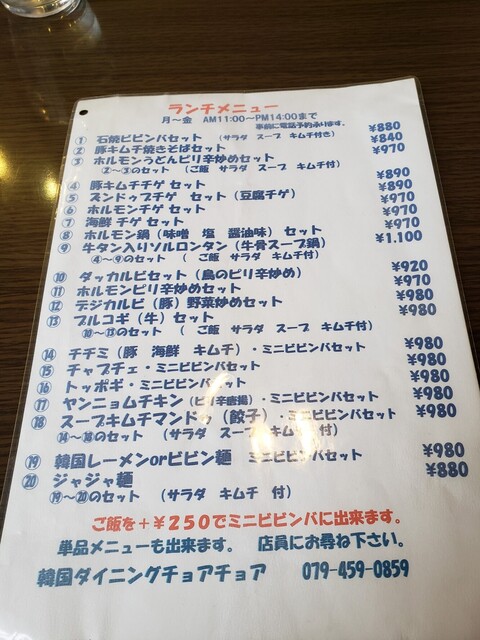 ランチメニュー
月～金 AM11:00～PM14:00まで
事前に電話予約承ります。
① 石焼ビビンバセット (サラダ スープ キムチ付き) ¥880
② 豚キムチ焼きそばセット ¥840
③ ホルモンうどんピリ辛炒めセット ¥970
②～③のセット ( ご飯 サラダ スープ キムチ付)
④ 豚キムチチゲ セット ¥890
⑤ ズンドゥブチゲ セット (豆腐チゲ) ¥890
⑥ ホルモンチゲ セット ¥970
⑦ 海鮮 チゲ セット ¥970
⑧ ホルモン鍋 (味噌 塩 醤油味) セット ¥970
⑨ 牛タン入りソルロンタン (牛骨スープ鍋) ¥1.100
④～⑨のセット ( ご飯 サラダ キムチ付)
⑩ ダッカルビセット (鳥のピリ辛炒め) ¥920
⑪ ホルモンピリ辛炒めセット ¥970
⑫ テジカルビ (豚) 野菜炒めセット ¥980
⑬ プルコギ (牛) セット ¥980
⑩～⑬のセット ( ご飯 サラダ スープ キムチ付)
⑭ チヂミ (豚 海鮮 キムチ) ・ミニビビンバセット ¥980
⑮ チャプチェ・ミニビビンバセット ¥980
⑯ トッポギ・ミニビビンバセット ¥980
⑰ ヤンニョムチキン (ピリ辛唐揚) ・ミニビビンバセット ¥980
⑱ スープキムチマンドゥ (餃子) ・ミニビビンバセット ¥980
⑭～⑱のセット (サラダ スープ キムチ 付)
⑲ 韓国レーメンorビビン麺 ミニビビンバセット ¥980
⑳ ジャジャ麺 ¥880
⑲～⑳のセット (サラダ キムチ 付)
ご飯を＋¥250でミニビビンバに出来ます。
単品メニューも出来ます。 店員にお尋ね下さい。
韓国ダイニングチョアチョア 079-459-0859